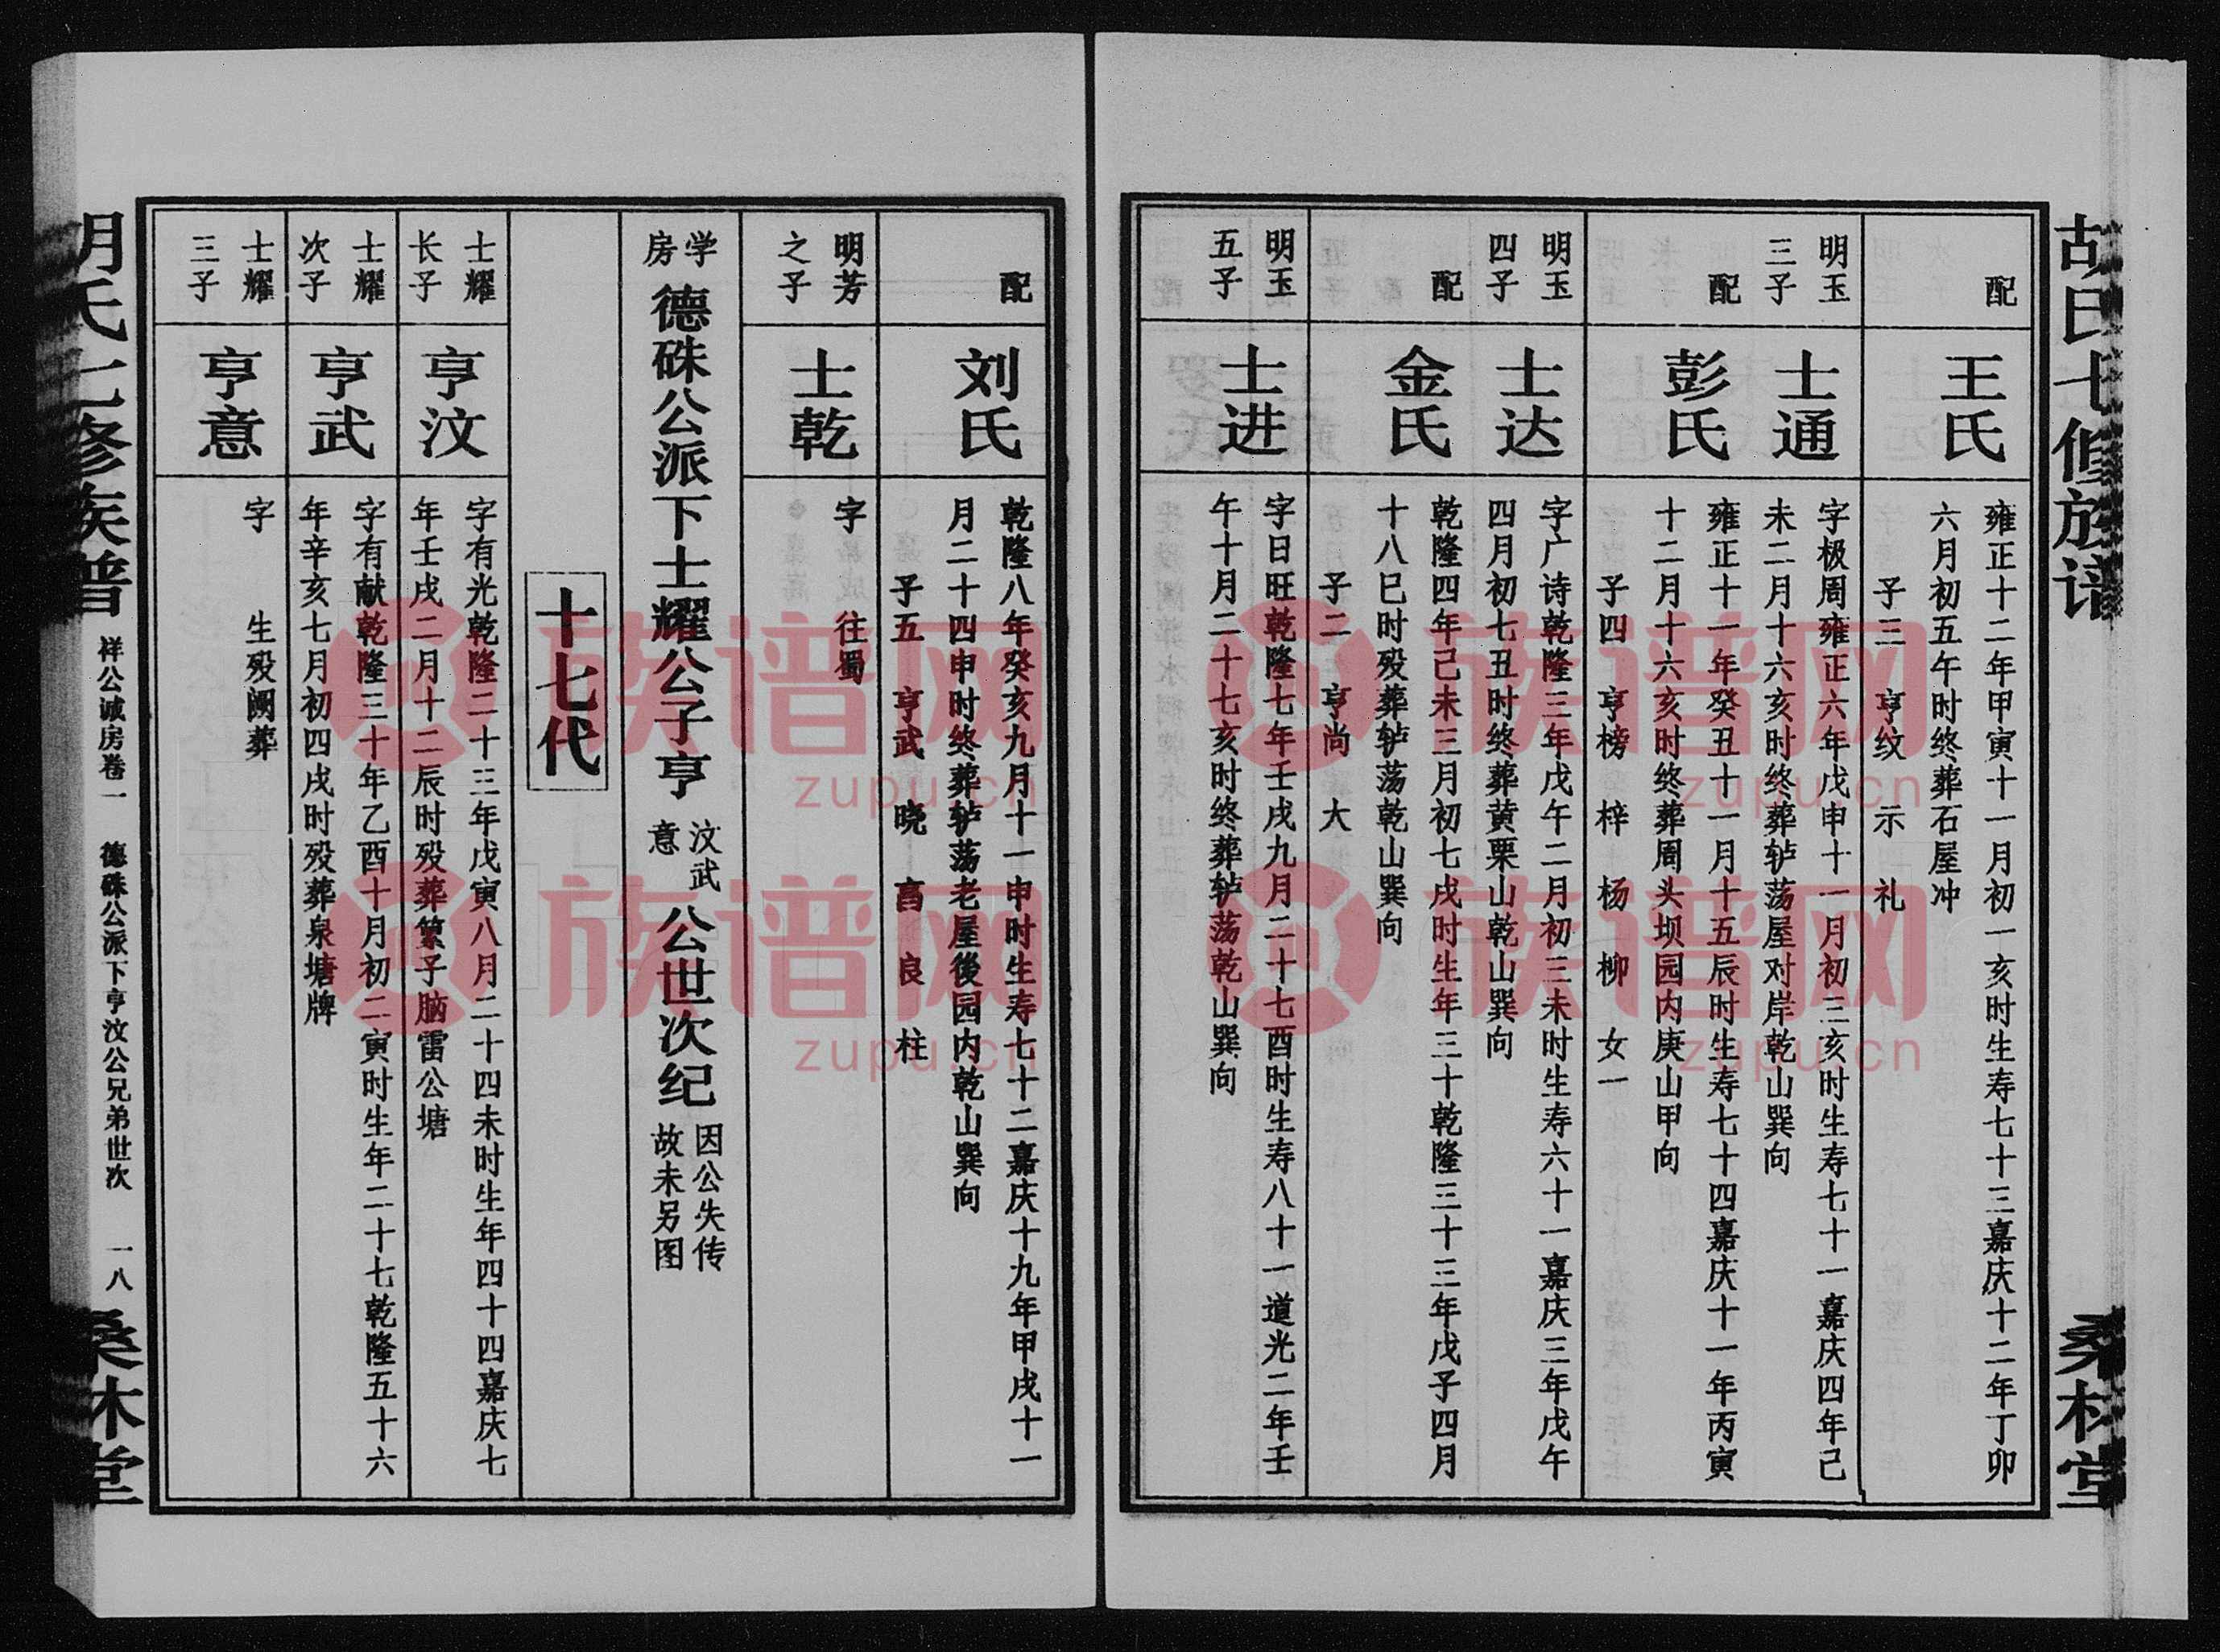 胡氏七修族谱
桑林堂
配
王氏
雍正十二年甲寅十一月初一亥时生寿七十三嘉庆十二年丁卯
六月初五午时终葬石屋冲
子三 亨纹 示 礼
明玉
三子
士通
字极周雍正六年戊申十一月初三亥时生寿七十一嘉庆四年己
未二月十六亥时终葬轳荡屋对岸乾山巽向
配
彭氏
雍正十一年癸丑十一月十五辰时生寿七十四嘉庆十一年丙寅
十二月十六亥时终葬周头坝园内庚山甲向
子四 亨榜 梓 杨 柳 女一
明玉
四子
士达
字广诗乾隆三年戊午二月初三未时生寿六十一嘉庆三年戊午
四月初七丑时终葬黄栗山乾山巽向
配
金氏
乾隆四年己未三月初七戌时生年三十乾隆三十三年戊子四月
十八巳时殁葬轳荡乾山巽向
子二 亨尚 大
明玉
五子
士进
字日旺乾隆七年壬戌九月二十七酉时生寿八十一道光二年壬
午十月二十七亥时终葬轳荡乾山巽向
配
刘氏
乾隆八年癸亥九月十一申时生寿七十二嘉庆十九年甲戌十一
月二十四申时终葬轳荡老屋後园内乾山巽向
子五 亨武 晓 畐 良 柱
明芳
之子
士乾
字 往蜀
学房 德硃公派下士耀公子亨 汶武意 公世次纪 因公失传故未另图
十七代
士耀
长子
亨汶
字有光乾隆二十三年戊寅八月二十四未时生年四十四嘉庆七
年壬戌二月十二辰时殁葬箓子脑雷公塘
士耀
次子
亨武
字有献乾隆三十年乙酉十月初二寅时生年二十七乾隆五十六
年辛亥七月初四戌时殁葬泉塘牌
士耀
三子
亨意
字 生殁阙葬
胡氏七修族谱
祥公诚房卷一 德硃公派下亨汶公兄弟世次 一八
桑林堂
族谱网
zupu.cn
族谱网
zupu.cn
族谱网
zupu.cn
族谱网
zupu.cn